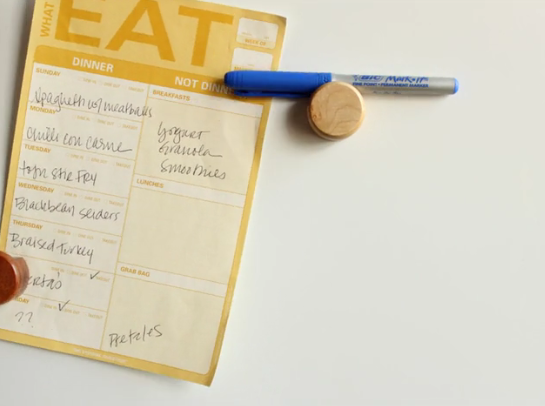 WHAT
EAT
DINNER
NOT DINN
SUNDAY
Spaghetti w/ meatballs
MONDAY
Chilli con carne
TUESDAY
tofu stir Fry
WEDNESDAY
Blackbean
THURSDAY
Braised Turkey
DAY
??
BREAKFASTS
Yogurt
Granola
Smoothies
LUNCHES
GRAB BAG
BIC Mark-it